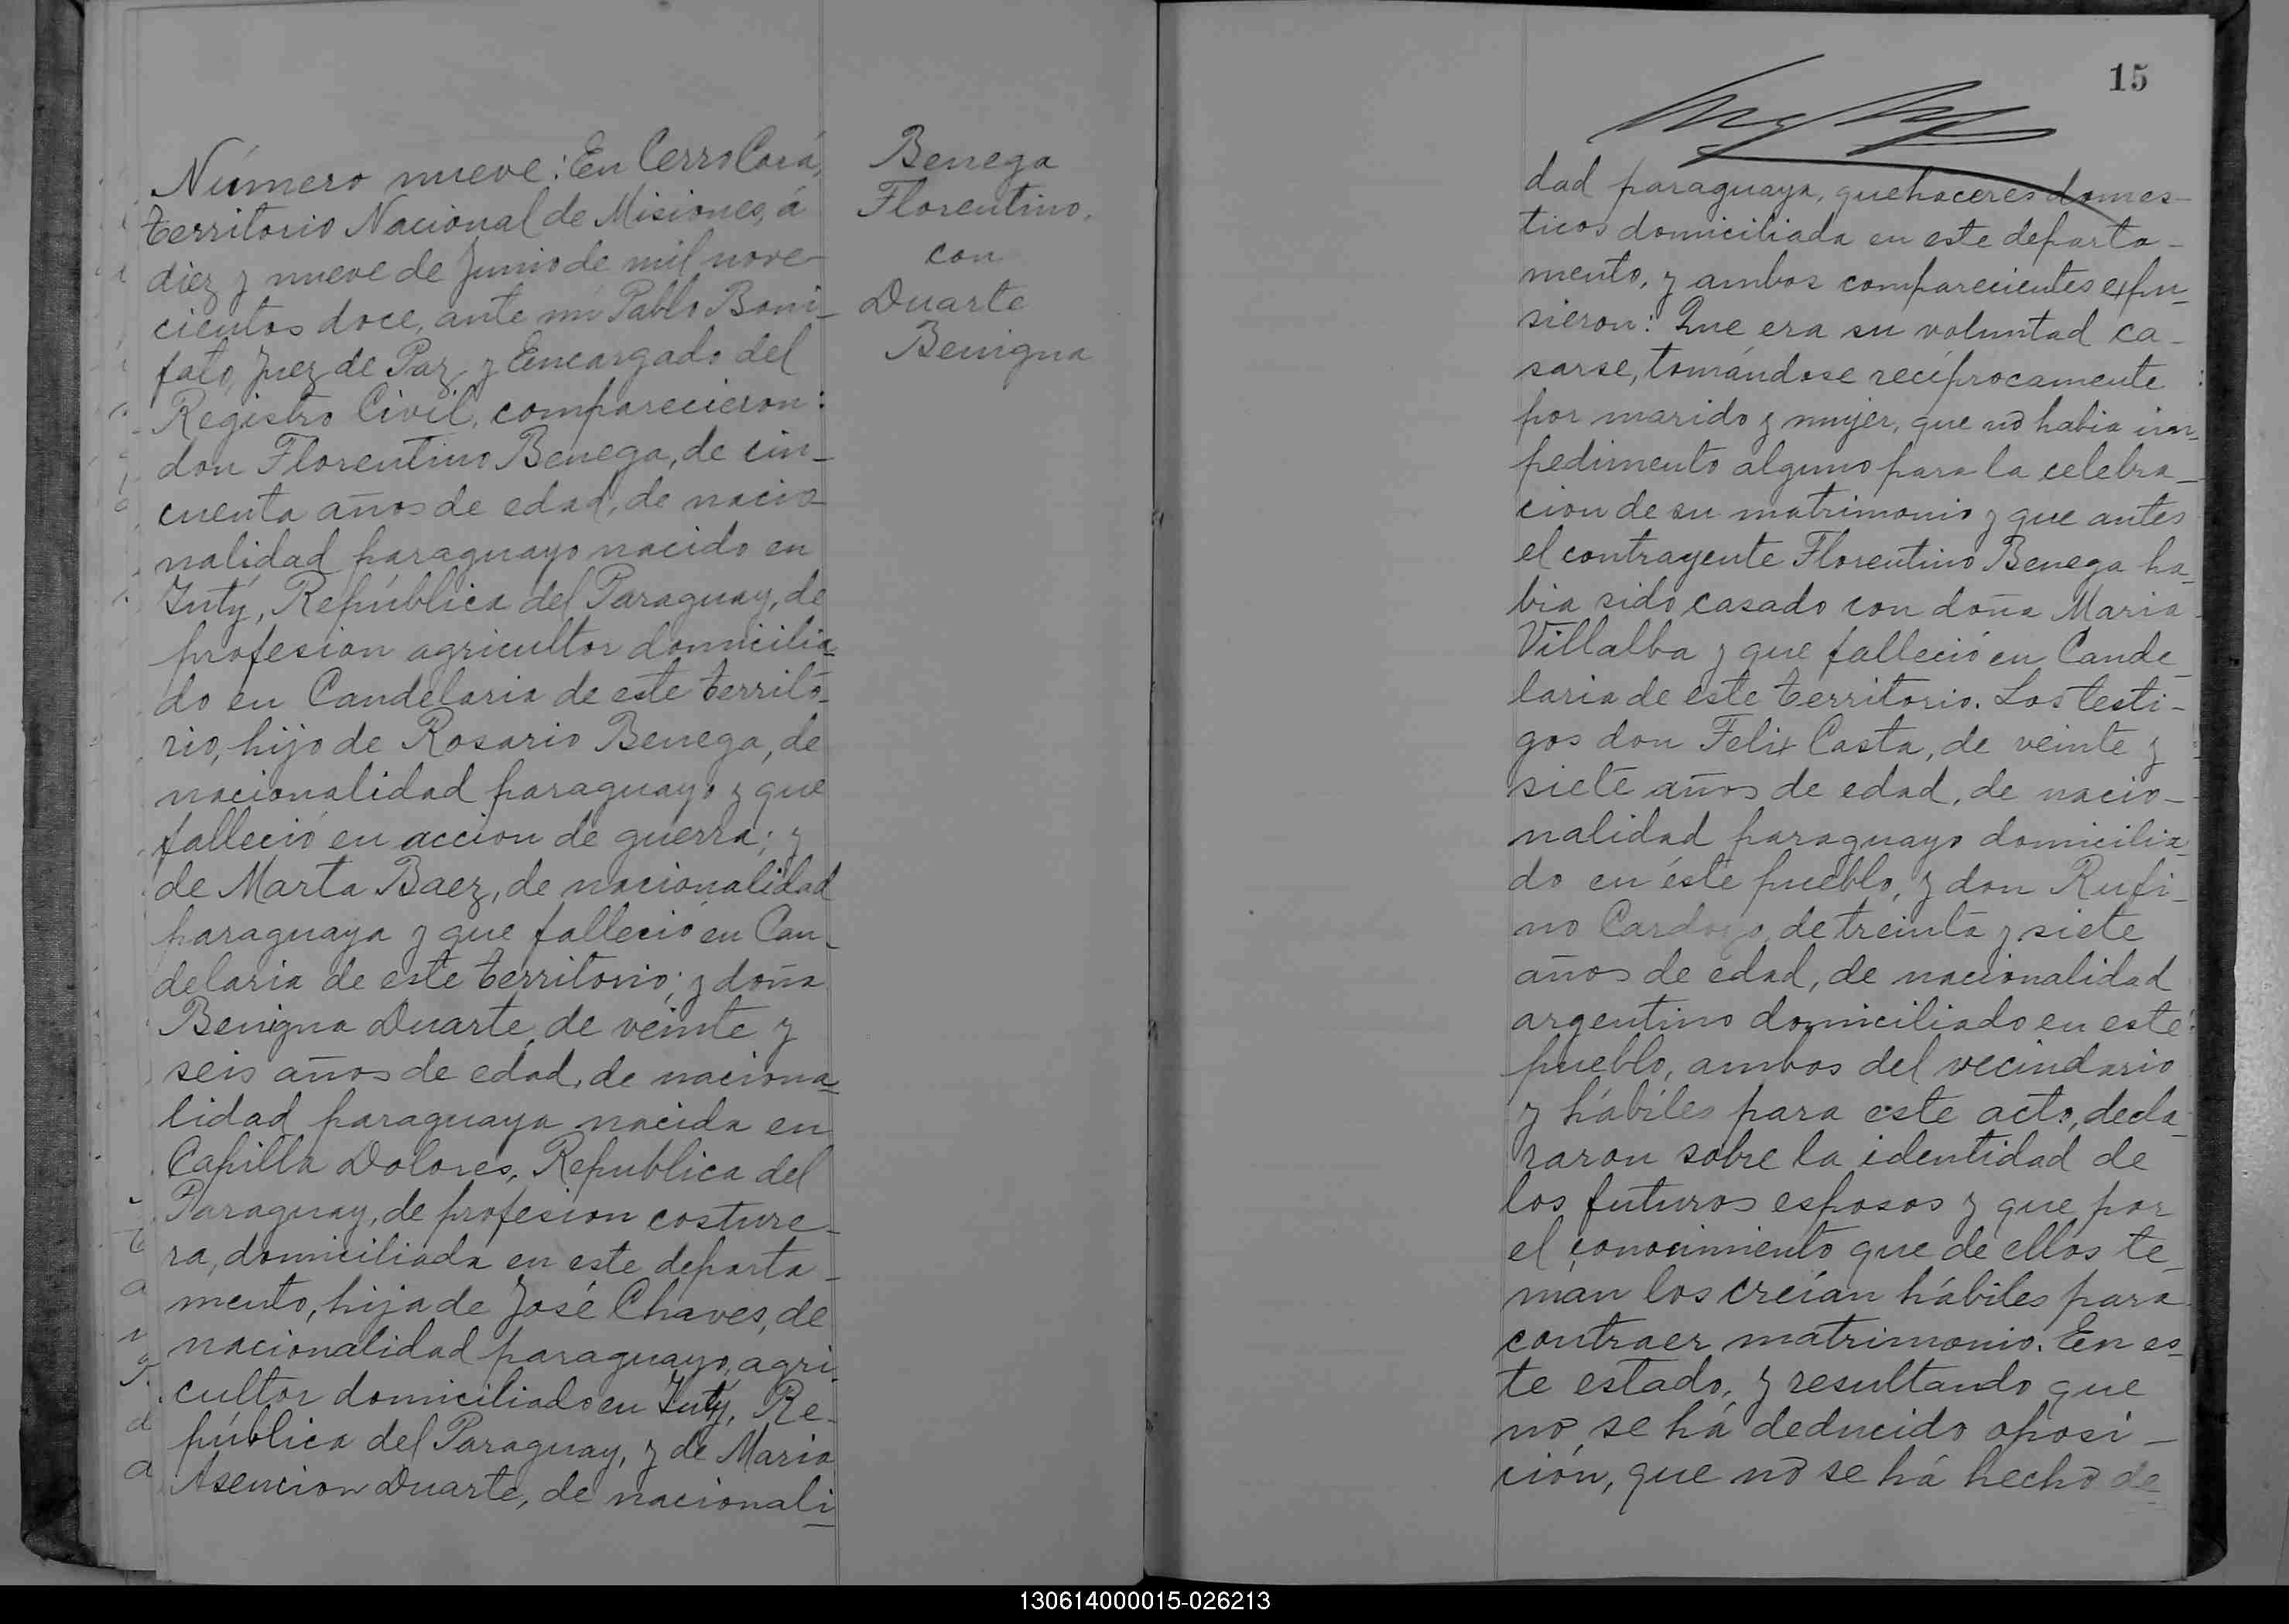 Número nueve: En Cerro Corá,
territorio Nacional de Misiones, á
diez y nueve de Junio de mil nove-
cientos doce, ante mi Pablo Boni-
fato, Juez de Paz y Encargado del
Registro Civil, comparecieron:
don Florentino Benega, de cin-
cuenta años de edad, de nacio-
nalidad paraguayo nacido en
Yuty, República del Paraguay, de
profesion agricultor domicilia-
do en Candelaria de este territo-
rio, hijo de Rosario Benega, de
nacionalidad paraguayo y que
falleció en accion de guerra; y
de Marta Baez, de nacionalidad
paraguaya y que falleció en Can-
delaria de este territorio; y doña
Benigna Duarte, de veinte y
seis años de edad, de naciona-
lidad paraguaya nacida en
Capilla Dolores, Republica del
Paraguay, de profesion costure-
ra, domiciliada en este departa-
mento, hija de José Chaves, de
nacionalidad paraguayo, agri-
cultor domiciliado en Yuty, Re-
pública del Paraguay, y de Maria
Asencion Duarte, de nacionali-
Benega
Florentino,
con
Duarte
Benigna
15
dad paraguaya, quehaceres domes-
ticos domiciliada en este departa-
mento, y ambos comparecientes expu-
sieron: Que era su voluntad ca-
sarse, tomándose recíprocamente
por marido y mujer, que no habia im-
pedimento alguno para la celebra-
cion de su matrimonio y que antes
el contrayente Florentino Benega ha-
bia sido casado con doña Maria
Villalba y que falleció en Cande-
laria de este territorio. Los testi-
gos don Felix Casta, de veinte y
siete años de edad, de nacio-
nalidad paraguayo domicilia-
do en éste pueblo, y don Rufi-
no Cardozo, de treinta y siete
años de edad, de nacionalidad
argentino domiciliado en este
pueblo, ambos del vecindario
y hábiles para este acto, decla-
raron sobre la identidad de
los futuros esposos y que por
el conocimiento que de ellos te-
nian los creían hábiles para
contraer matrimonio. En es-
te estado, y resultando que
no se há deducido oposi-
ción, que no se há hecho de-
130614000015-026213